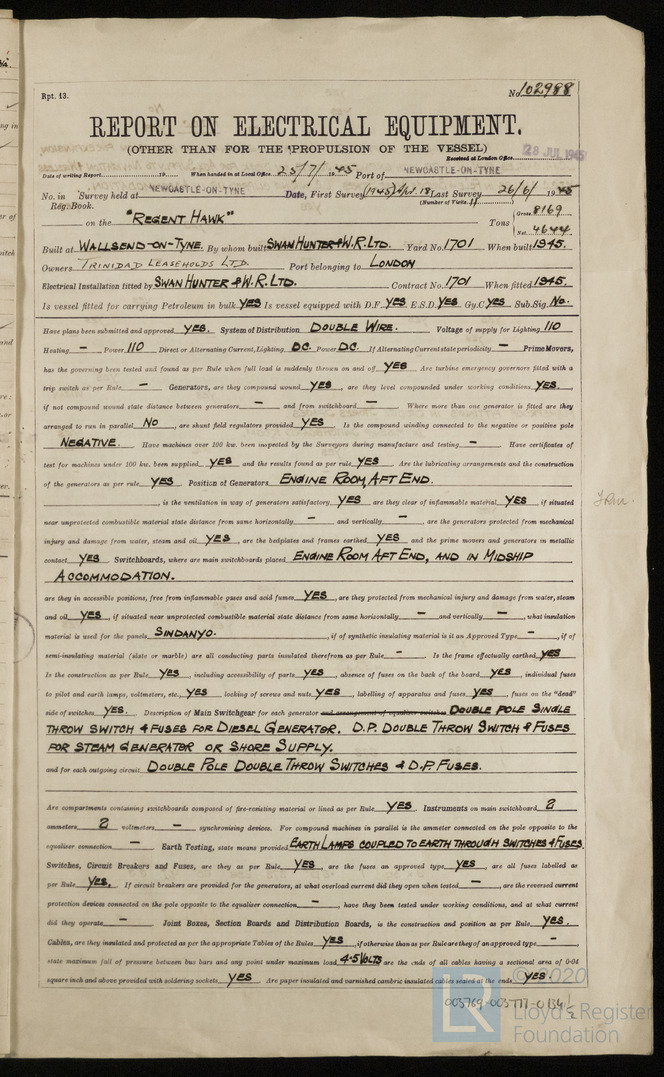 Rpt. 13.
No. 102988
REPORT ON ELECTRICAL EQUIPMENT.
(OTHER THAN FOR THE PROPULSION OF THE VESSEL)
Received at London Office 28 JUL 1945
Date of writing Report 19 When handed in at Local Office 25/7/1945 Port of NEWCASTLE-ON-TYNE
No. in Survey held at NEWCASTLE-ON-TYNE Date, First Survey (1945) Last Survey 26/6/1945
Reg. Book. (Number of Visits 11)
on the "REGENT HAWK" Tons { Gross 8169 Net 4644
Built at WALLSEND-ON-TYNE. By whom built SWAN HUNTER & W.R. LTD. Yard No. 1701 When built 1945.
Owners TRINIDAD LEASEHOLDS LTD. Port belonging to LONDON
Electrical Installation fitted by SWAN HUNTER & W.R. LTD. Contract No. 1701 When fitted 1945.
Is vessel fitted for carrying Petroleum in bulk YES Is vessel equipped with D.F. YES E.S.D. YES Gy.C YES Sub.Sig. No.
Have plans been submitted and approved YES. System of Distribution DOUBLE WIRE. Voltage of supply for Lighting 110
Heating — Power 110 Direct or Alternating Current, Lighting DC. Power DC. If Alternating Current state periodicity — Prime Movers,
has the governing been tested and found as per Rule when full load is suddenly thrown on and off YES Are turbine emergency governors fitted with a
trip switch as per Rule — Generators, are they compound wound YES, are they level compounded under working conditions YES,
if not compound wound state distance between generators — and from switchboard — Where more than one generator is fitted are they
arranged to run in parallel NO, are shunt field regulators provided YES Is the compound winding connected to the negative or positive pole
NEGATIVE. Have machines over 100 kw. been inspected by the Surveyors during manufacture and testing — Have certificates of
test for machines under 100 kw. been supplied YES and the results found as per rule YES Are the lubricating arrangements and the construction
of the generators as per rule YES Position of Generators ENGINE ROOM, AFT END.
, is the ventilation in way of generators satisfactory YES are they clear of inflammable material YES, if situated
near unprotected combustible material state distance from same horizontally — and vertically —, are the generators protected from mechanical
injury and damage from water, steam and oil YES, are the bedplates and frames earthed YES and the prime movers and generators in metallic
contact YES Switchboards, where are main switchboards placed ENGINE ROOM AFT END, AND IN MIDSHIP
ACCOMMODATION.
are they in accessible positions, free from inflammable gases and acid fumes YES, are they protected from mechanical injury and damage from water, steam
and oil YES, if situated near unprotected combustible material state distance from same horizontally — and vertically —, what insulation
material is used for the panels SINDANYO., if of synthetic insulating material is it an Approved Type —, if of
semi-insulating material (slate or marble) are all conducting parts insulated therefrom as per Rule — Is the frame effectually earthed YES
Is the construction as per Rule YES, including accessibility of parts YES, absence of fuses on the back of the board YES, individual fuses
to pilot and earth lamps, voltmeters, etc. YES locking of screws and nuts YES, labelling of apparatus and fuses YES, fuses on the "dead"
side of switches YES. Description of Main Switchgear for each generator and arrangement of equaliser switches DOUBLE POLE SINGLE
THROW SWITCH & FUSES FOR DIESEL GENERATOR. D.P. DOUBLE THROW SWITCH & FUSES
FOR STEAM GENERATOR OR SHORE SUPPLY.
and for each outgoing circuit DOUBLE POLE DOUBLE THROW SWITCHES & D.P. FUSES.
Are compartments containing switchboards composed of fire-resisting material or lined as per Rule YES. Instruments on main switchboard 2
ammeters 2 voltmeters — synchronising devices. For compound machines in parallel is the ammeter connected to the pole opposite to the
equaliser connection — Earth Testing, state means provided EARTH LAMPS COUPLED TO EARTH THROUGH SWITCHES & FUSES.
Switches, Circuit Breakers and Fuses, are they as per Rule YES, are the fuses an approved type YES, are all fuses labelled as
per Rule YES. If circuit breakers are provided for the generators, at what overload current did they open when tested —, are the reversed current
protection devices connected on the pole opposite to the equaliser connection —, have they been tested under working conditions, and at what current
did they operate — Joint Boxes, Section Boards and Distribution Boards, is the construction and position as per Rule YES.
Cables, are they insulated and protected as per the appropriate Tables of the Rules YES, if otherwise than as per Rule are they of an approved type —,
state maximum fall of pressure between bus bars and any point under maximum load 4.5 VOLTS are the ends of all cables having a sectional area of 0.04
square inch and above provided with soldering sockets YES Are paper insulated and varnished cambric insulated cables sealed at the ends YES.
© 2020
LR Lloyd's Register
Foundation